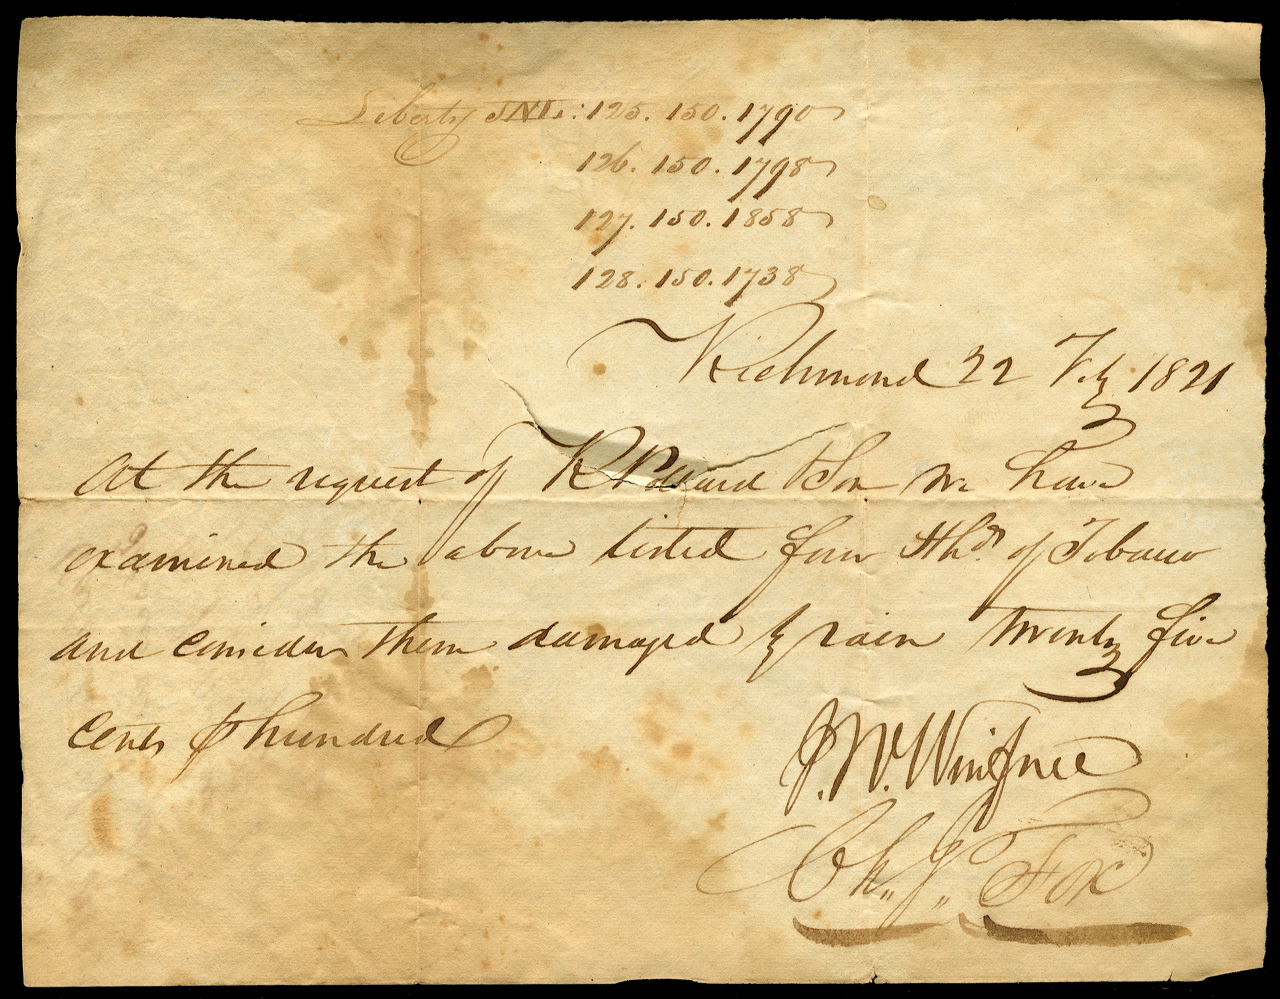 Liberty JNL: 125. 150. 1790
126. 150. 1798
127. 150. 1858
128. 150. 1738
Richmond 22 Feby 1821
At the request of R Pollard & Son we have
examined the above listed four Hhds of Tobacco
and consider them damaged by rain Twenty five
cents ⅌ hundred
J. W. Winfree
Chs. J. Fox